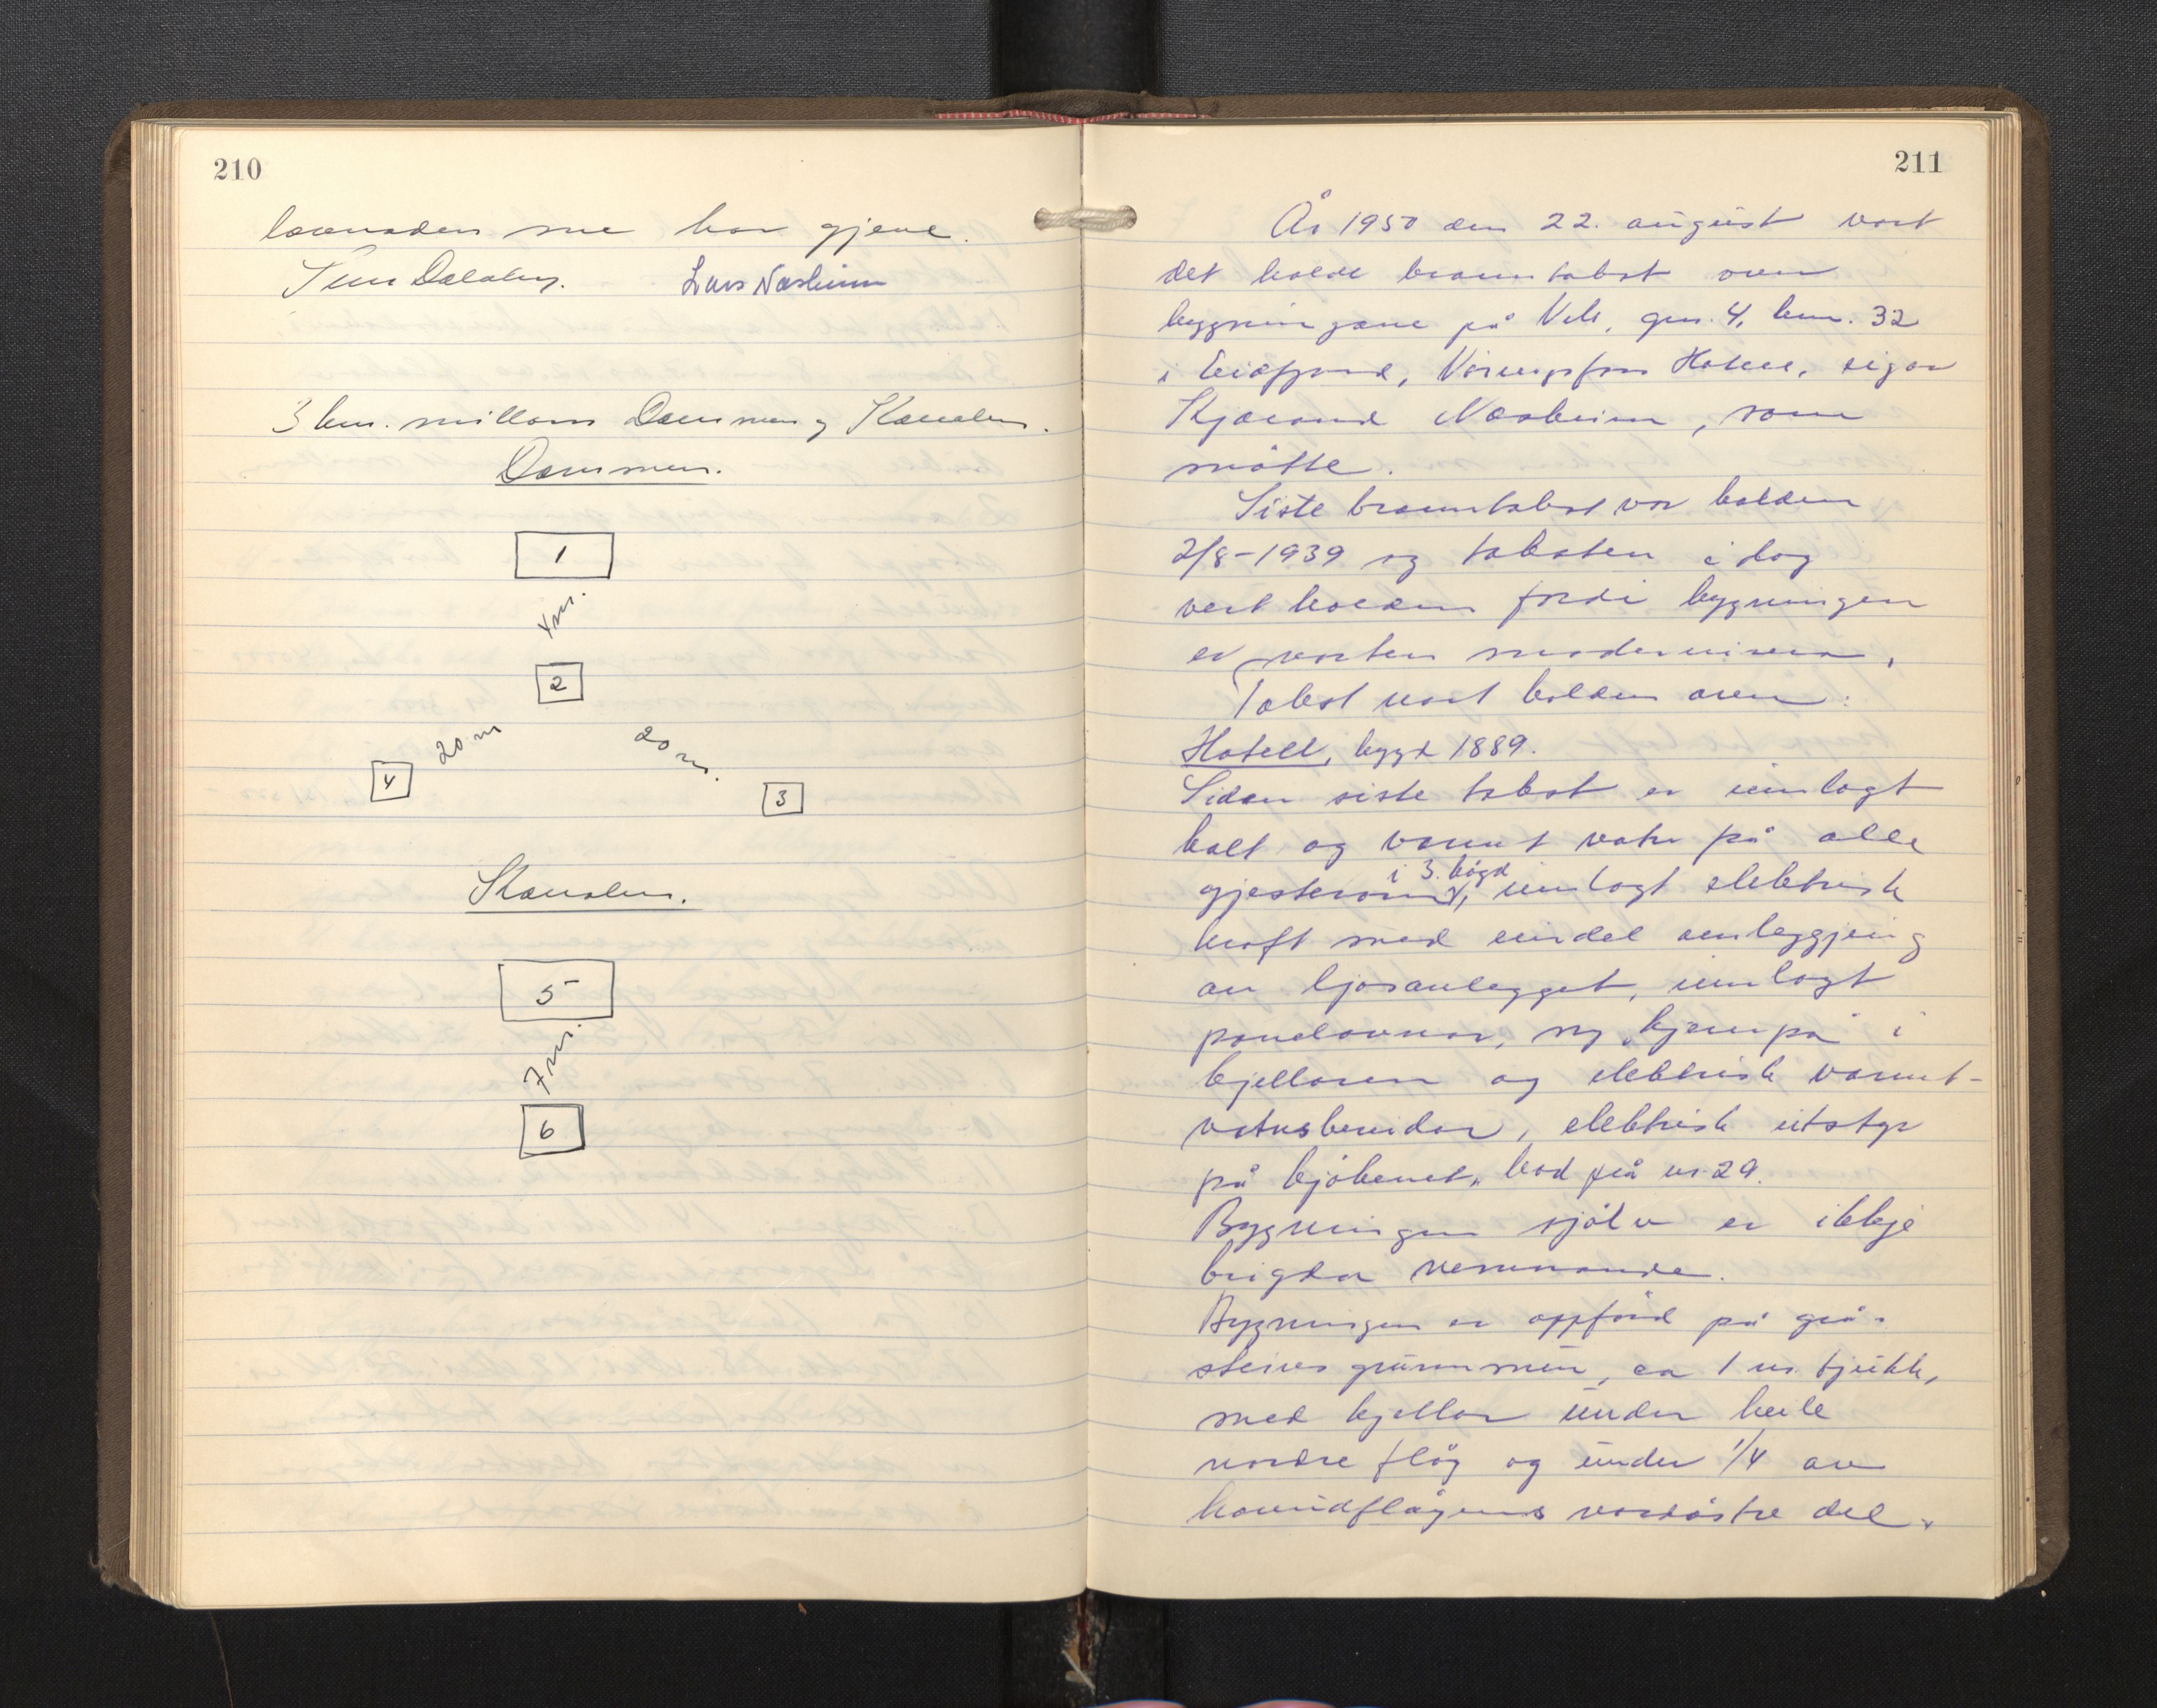 210
lovnaden me har gjeve.
Lars Næsheim
3 km. millom Dammen og
Dammen.
1
4 m.
2
20 m
20 m.
4
3
5
7 m.
6
211
År 1950 den 22. august vart
det halde branntakst over
bygningane på Vik, gnr. 4, bnr. 32
i Eidfjord, Vöringsfoss Hotell, eigar
Næsheim, som
møtte.
Siste branntakst var halden
2/8-1939 og taksten i dag
vert halden fordi bygningen
er vorten modernisera.
Takst vart halden over:
Hotell, bygd 1889.
Sidan siste takst er innlagt
kalt og varmt vatn på alle
gjesterom i 3. högd, innlagt elektrisk
kraft med eindel omleggjing
av ljosanlegget, innlagt
panelovnar, ny "kjempå" i
kjellaren og elektrisk varmt-
vatnsberedar, elektrisk utstyr
på kjökenet, bad på nr 29.
Bygningen sjölv er ikkje
brigda nemnande.
Bygningen er oppförd på grå-
steins grunnmur, ca 1 m. tjukk,
med kjellar under heile
nordre flög og under 1/4 av
hovudflögens nordöstre del.